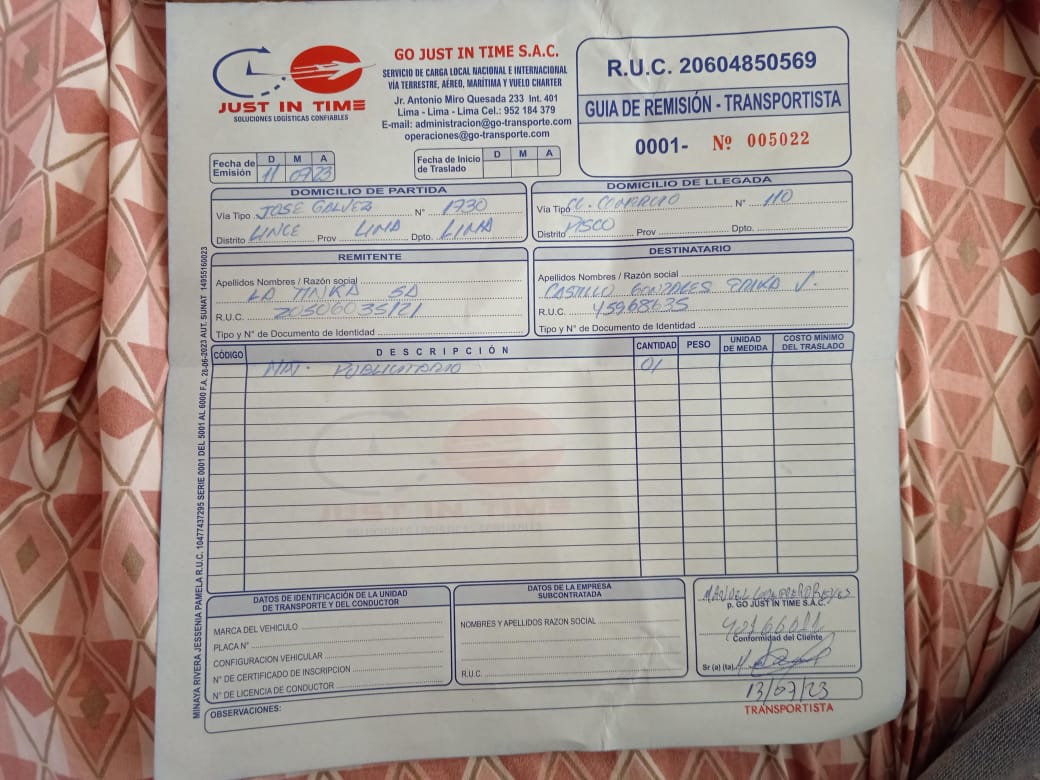 JUST IN TIME
SOLUCIONES LOGÍSTICAS CONFIABLES
GO JUST IN TIME S.A.C.
SERVICIO DE CARGA LOCAL NACIONAL E INTERNACIONAL
VÍA TERRESTRE, AÉREO, MARÍTIMA Y VUELO CHARTER
Jr. Antonio Miro Quesada 233 Int. 401
Lima - Lima - Lima Cel.: 952 184 379
E-mail: administracion@go-transporte.com
operaciones@go-transporte.com
R.U.C. 20604850569
GUIA DE REMISIÓN - TRANSPORTISTA
0001- Nº 005022
Fecha de Emisión D M A 11 07 23
Fecha de Inicio de Traslado D M A
DOMICILIO DE PARTIDA
Vía Tipo JOSE GALVEZ N° 1730
Distrito LINCE Prov LIMA Dpto. LIMA
DOMICILIO DE LLEGADA
Vía Tipo CL. COMERCIO N° 110
Distrito PISCO Prov Dpto.
REMITENTE
Apellidos Nombres / Razón social
LA TINKA SA
R.U.C. 20506035121
Tipo y N° de Documento de Identidad
DESTINATARIO
Apellidos Nombres / Razón social
CASTILLO GONZALES ERIKA J.
R.U.C. 45968635
Tipo y N° de Documento de Identidad
CÓDIGO DESCRIPCIÓN CANTIDAD PESO UNIDAD DE MEDIDA COSTO MÍNIMO DEL TRASLADO
MAT. PUBLICITARIO 01
JUST IN TIME
SOLUCIONES LOGÍSTICAS CONFIABLES
MINAYA RIVERA JESSENIA PAMELA R.U.C. 10477437295 SERIE 0001 DEL 5001 AL 6000 F.A. 28-06-2023 AUT. SUNAT 14955160023
DATOS DE IDENTIFICACIÓN DE LA UNIDAD
DE TRANSPORTE Y DEL CONDUCTOR
MARCA DEL VEHICULO
PLACA N°
CONFIGURACION VEHICULAR
N° DE CERTIFICADO DE INSCRIPCION
N° DE LICENCIA DE CONDUCTOR
DATOS DE LA EMPRESA
SUBCONTRATADA
NOMBRES Y APELLIDOS RAZON SOCIAL
R.U.C.
MANUEL REYES
p. GO JUST IN TIME S.A.C.
Conformidad del Cliente
Sr (a) (ta)
13/07/23
TRANSPORTISTA
OBSERVACIONES: